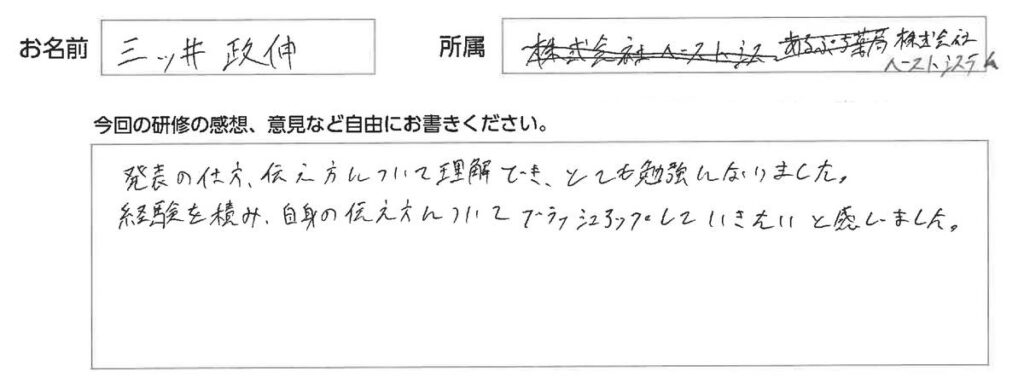 お名前 三ッ井 政伸 所属 株式会社ベストシス あるぷす薬局 株式会社
ベストシステム
今回の研修の感想、意見など自由にお書きください。
発表の仕方、伝え方について理解でき、とても勉強になりました。
経験を積み、自身の伝え方についてブラッシュアップしていきたいと感じました。